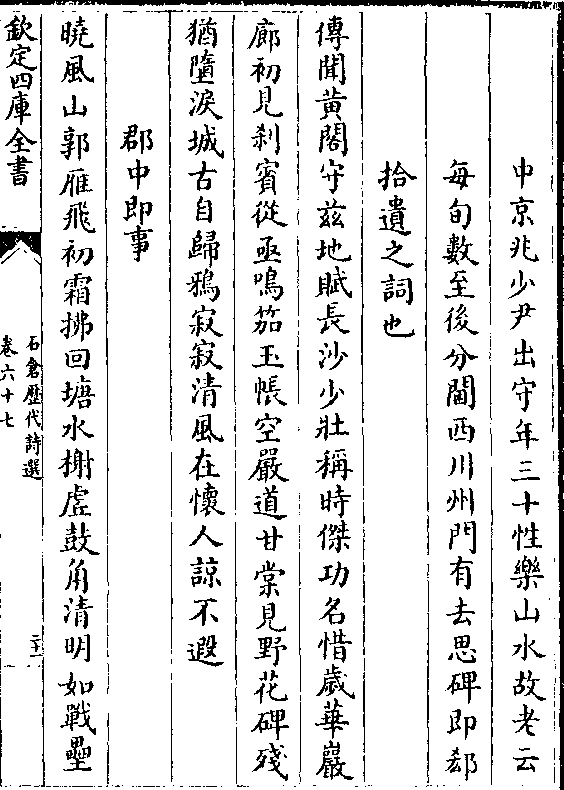 中京兆少尹出守年三十性樂山水故老云
每旬數至後分閫西川州門有去思碑即郄
拾遺之詞也
傳聞黄閣守兹地賦長沙少壯稱時傑功名惜歳華巖
廊初見刹賓從亟鳴笳玉帳空嚴道甘棠見野花碑殘
猶墮淚城古自歸鴉寂寂清風在懷人諒不遐
郡中即事
曉風山郭雁飛初霜拂回塘水榭虚鼓角清明如戰壘
欽定四庫全書
石倉歴代詩選
卷六十七
二十一